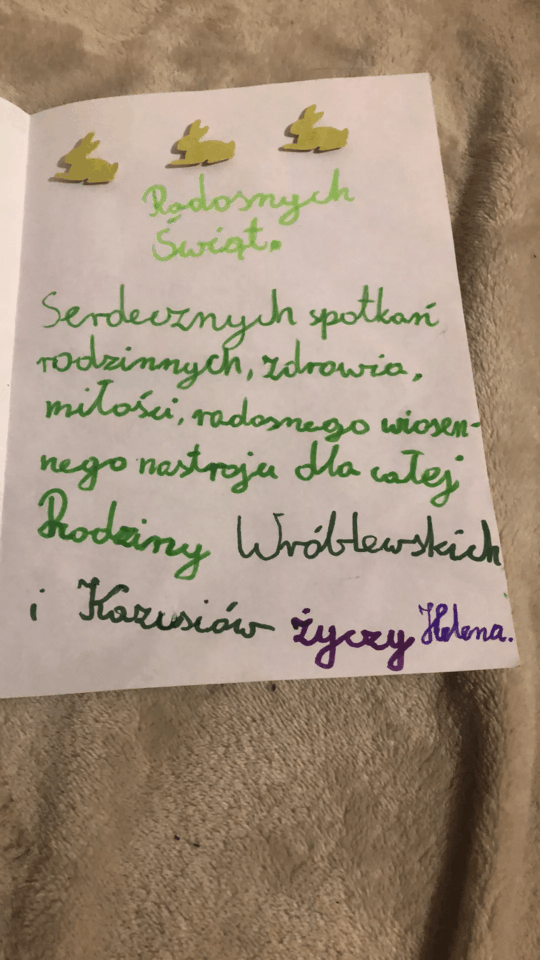 Radosnych
Świąt.
Serdecznych spotkań
rodzinnych, zdrowia,
miłości, radosnego wiosen-
nego nastroju dla całej
Rodziny Wróblewskich
i Kazusiów życzy Helena.